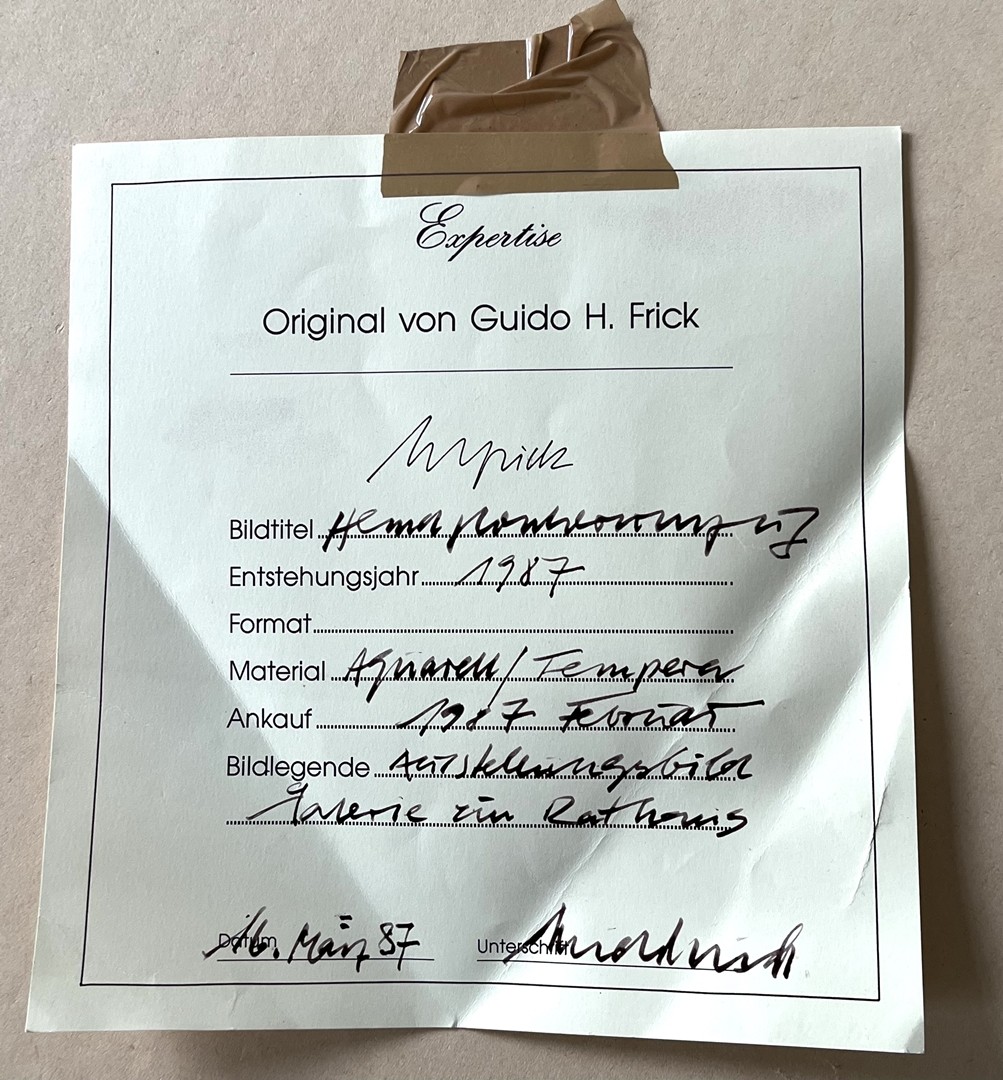 Expertise
Original von Guido H. Frick
Bildtitel
Entstehungsjahr 1987
Format
Material Aquarell/Tempera
Ankauf 1987 Februar
Bildlegende Ausstellungsbild
Galerie im Rathaus
Datum 16. März 87 Unterschrift